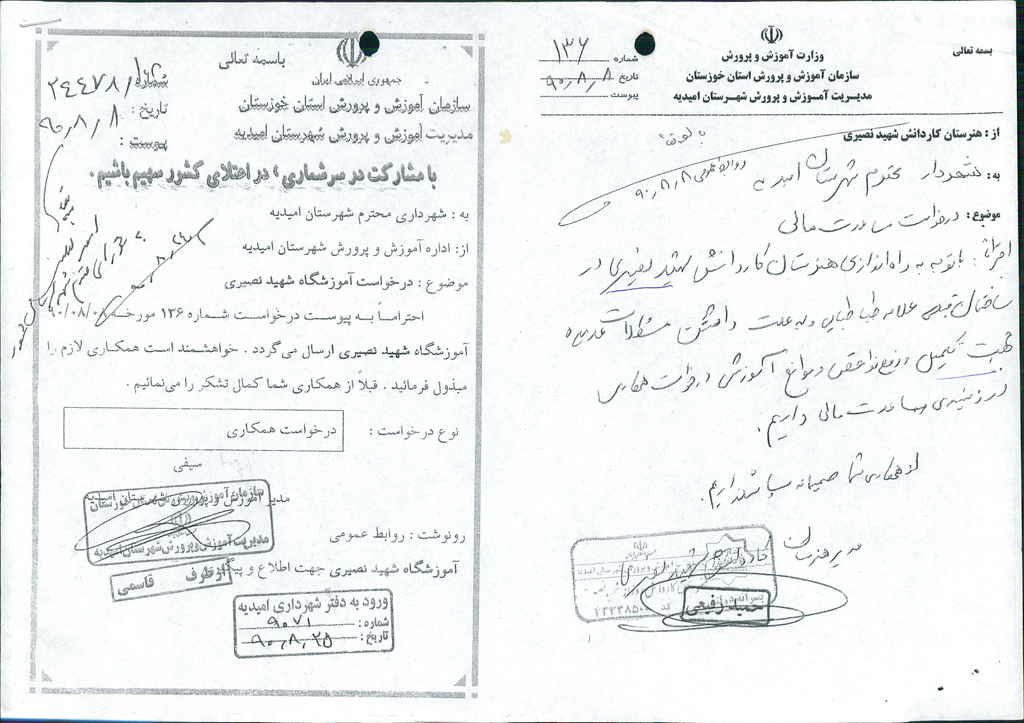 بسمه تعالی
وزارت آموزش و پرورش
سازمان آموزش و پرورش استان خوزستان
مدیریت آمـوزش و پرورش شهـرستان امیدیه
شماره ۱۳۶
تاریخ ۹۰٫۸٫۸
پیوست
از : هنرستان کاردانش شهید نصیری
به: شهردار محترم شهرستان امیدیه
روابط عمومی ۹۰٫۸٫۸
موضوع : درخواست مساعدت مالی
احتراماً : با توجه به راه اندازی هنرستان کاردانش شهید نصیری در
ساختمان قدیم علامه طباطبایی و به علت داشتن مشکلات عدیده
جهت تکمیل و رفع نواقص و موانع آموزشی درخواست همکاری
در زمینه‌ی مساعدت مالی داریم.
از همکاری شما صمیمانه سپاسگزاریم.
مدیر هنرستان کاردانش شهید نصیری
حمید رفیعی
باسمه تعالی
جمهوری اسلامی ایران
سازمان آموزش و پرورش استان خوزستان
مدیریت آموزش و پرورش شهرستان امیدیه
شماره: ۲۴۴۷۸/۱۶۰
تاریخ : ۹۰٫۸٫۸
پیوست :
با مشارکت در سرشماری ، در اعتلای کشور سهیم باشیم .
به : شهرداری محترم شهرستان امیدیه
از: اداره آموزش و پرورش شهرستان امیدیه
موضوع : درخواست آموزشگاه شهید نصیری
احتراماً به پیوست درخواست شماره ۱۳۶ مورخه ۹۰/۰۸/۰۸
آموزشگاه شهید نصیری ارسال می گردد . خواهشمند است همکاری لازم را
مبذول فرمائید . قبلاً از همکاری شما کمال تشکر را می‌نمائیم .
نوع درخواست : درخواست همکاری
سیفی
مدیر آموزش و پرورش شهرستان امیدیه
سازمان آموزش و پرورش استان خوزستان
مدیریت آموزش و پرورش شهرستان امیدیه
از طرف قاسمی
رونوشت : روابط عمومی
آموزشگاه شهید نصیری جهت اطلاع و پیگیری
ورود به دفتر شهرداری امیدیه
شماره : ۹۰۷۱
تاریخ : ۹۰٫۸٫۲۵